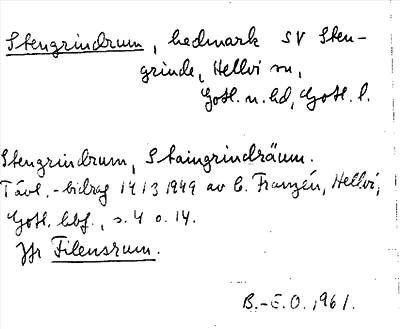 Stengrindrum, hedmark SV Sten-
grinde, Hellvi sn,
Gotl. n. hd, Gotl. l.
Stengrindrum, Staingrindräum.
Tävl.-bidrag 1413 1949 av C. Franzén, Hellvi,
Gotl. hbf., s. 4 o. 14.
Jfr Filensrum.
B.-E.O. 1961.